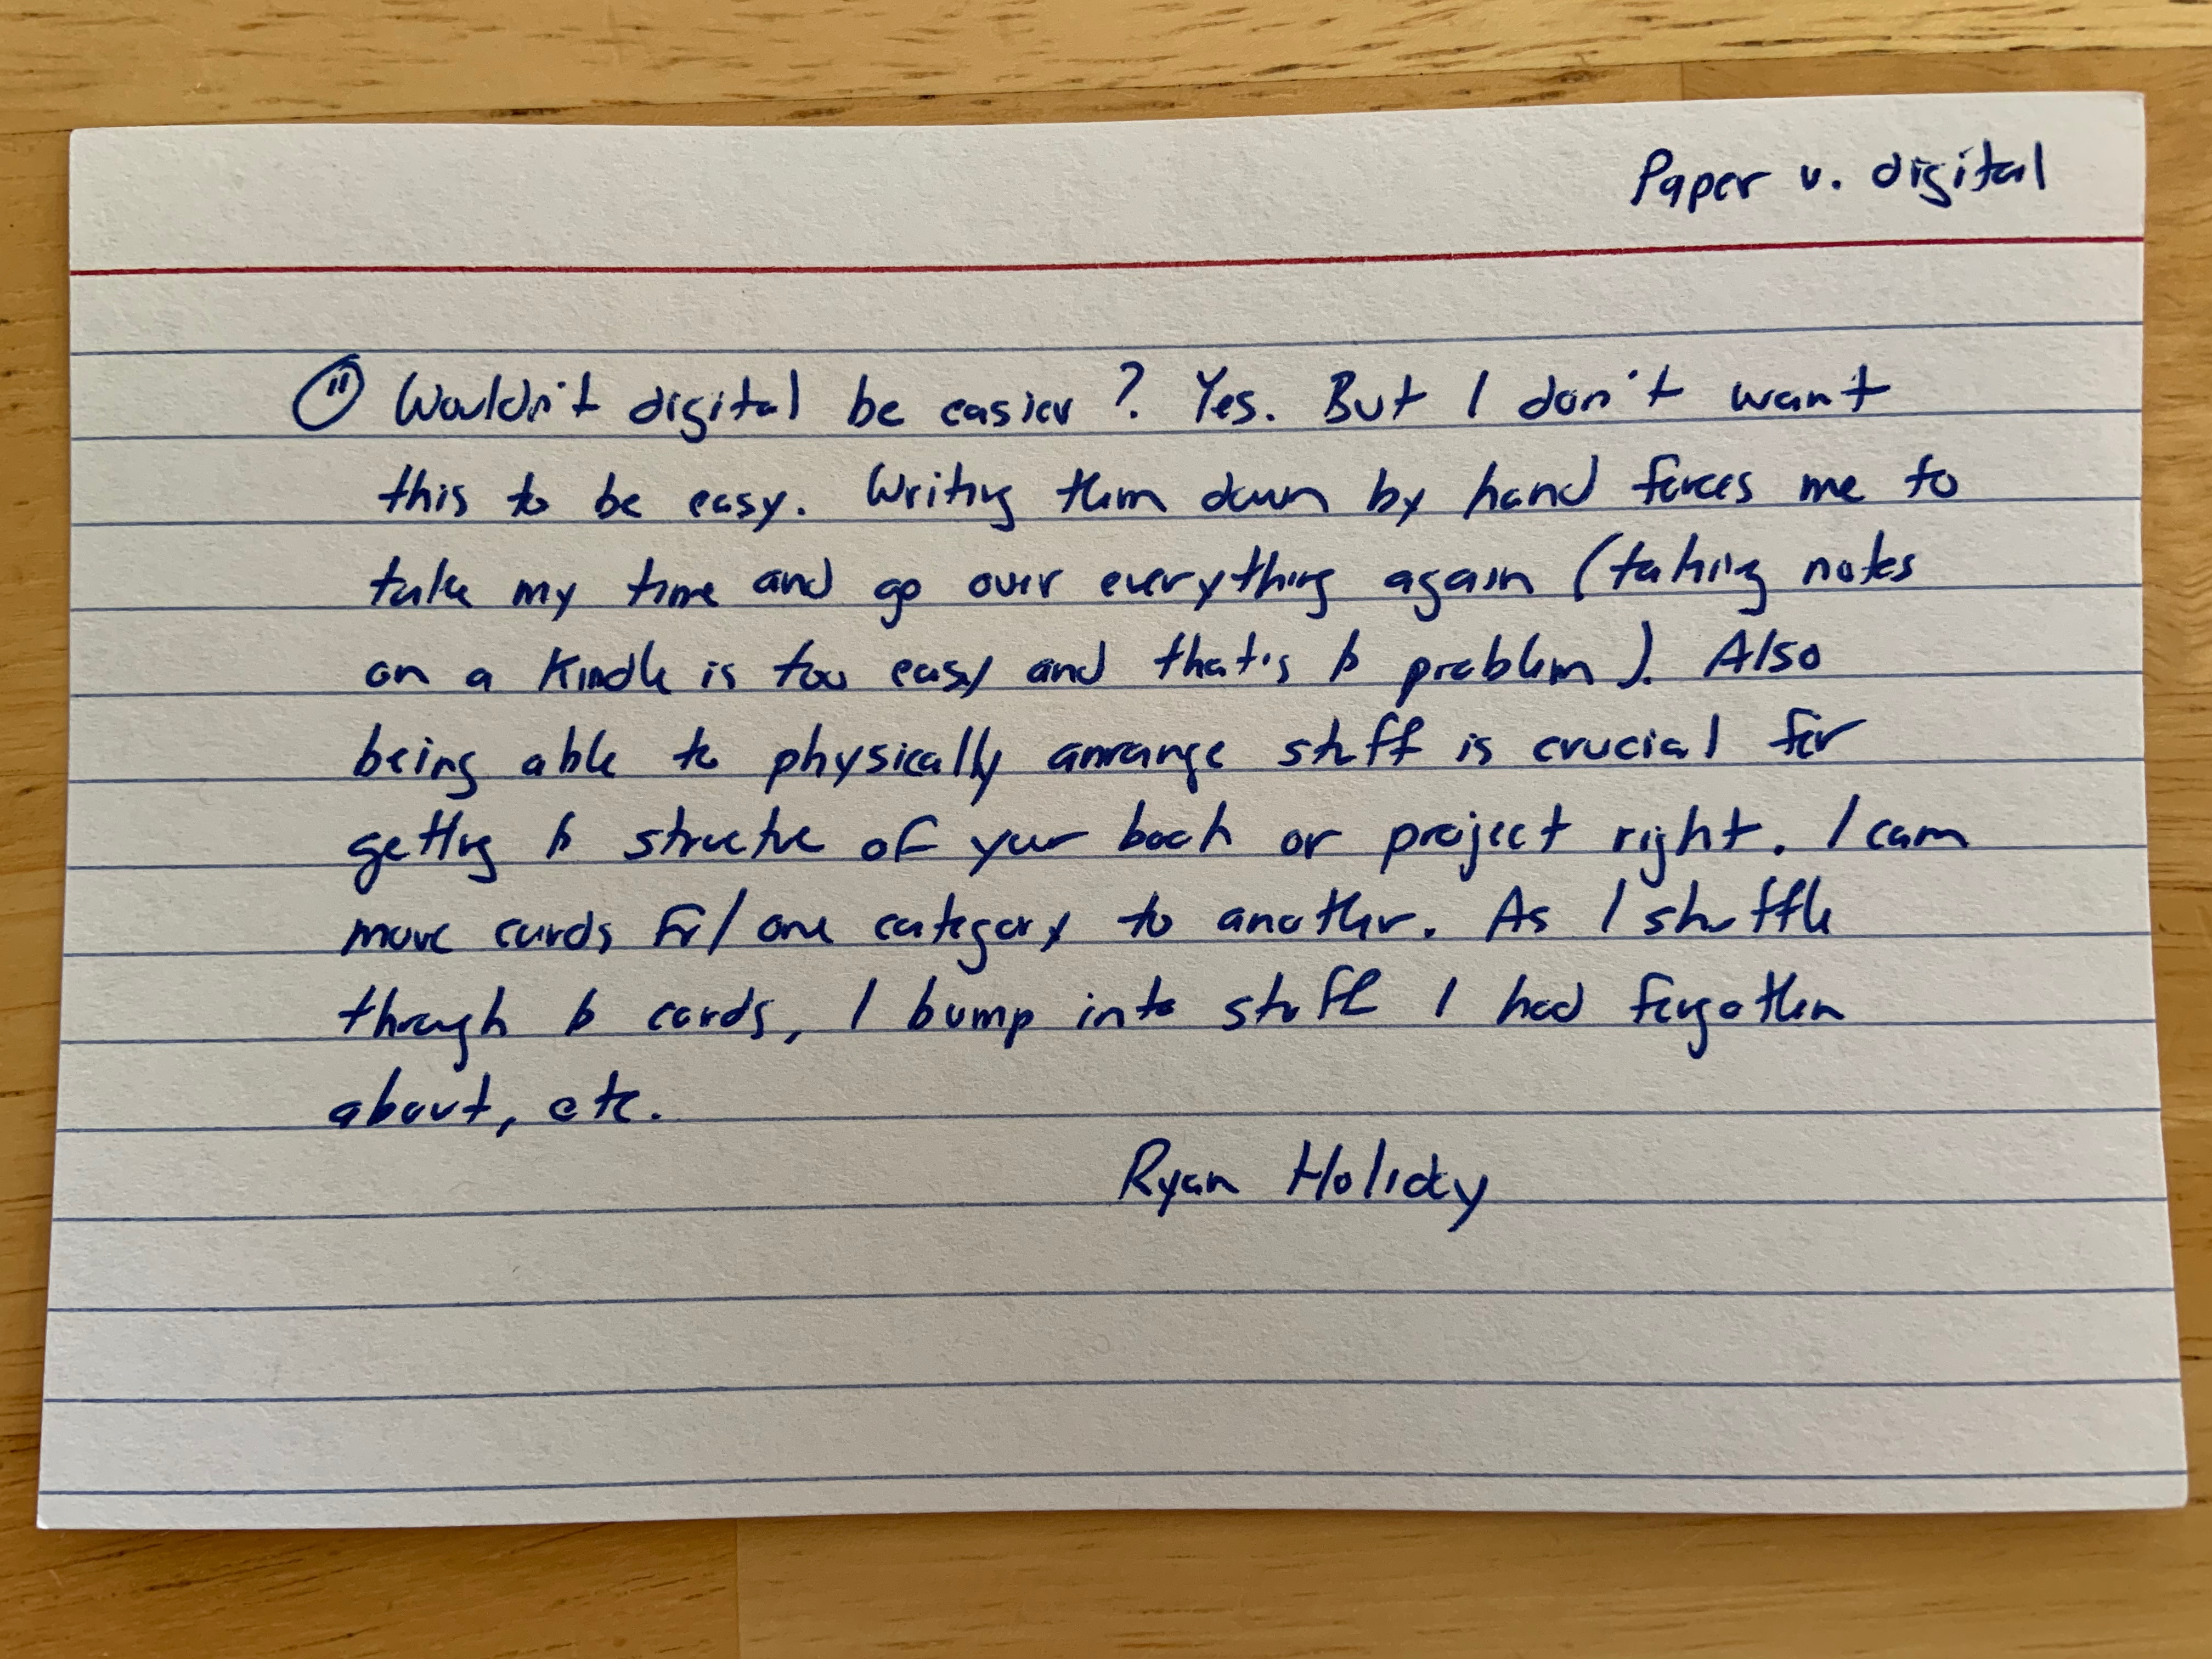 Paper v. digital
" Wouldn't digital be easier? Yes. But I don't want
this to be easy. Writing them down by hand forces me to
take my time and go over everything again (taking notes
on a Kindle is too easy and that's problem). Also
being able to physically arrange stuff is crucial for
getting structure of your book or project right. I can
move cards fr/ one category to another. As I shuffle
through cards, I bump into stuff I had forgotten
about, etc.
Ryan Holiday